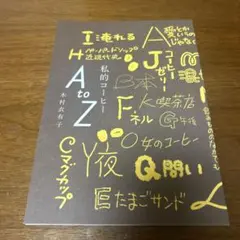 I 淹れる
A
H ペーパードリップ
近現代史
J コーヒー
ゼリー
私的コーヒー
A to Z
木村衣有子
B 本
F ネル
K 喫茶店
G 午後
Y 夜
O 女のコーヒー
C マグカップ
Q 問い
E たまごサンド
L